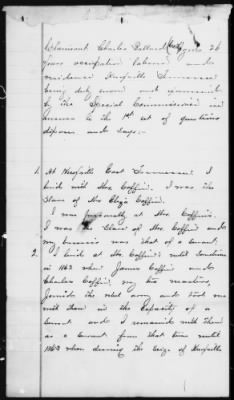 Claimant Charles Ballard aged 26
years occupation laborer and
residence Knoxville Tennessee
being duly sworn and examined
by the Special Commissioner in
answer to the 1st set of questions
deposes and says:-
1. At Knoxville East Tennessee I
lived with Mrs. Coffin. I was the
Slave of Mrs. Eliza Coffin.
I was personally at Mrs. Coffin's.
I was the Slave of Mrs Coffin and
my business was that of a servant.
2. I lived at Mrs. Coffin's until sometime
in 1862 when James Coffin and
Charles Coffin, my two masters,
joined the rebel army and took me
with them in the capacity of a
servant and I remained with them
as a servant from that time until
1863 when during the seige of Knoxville